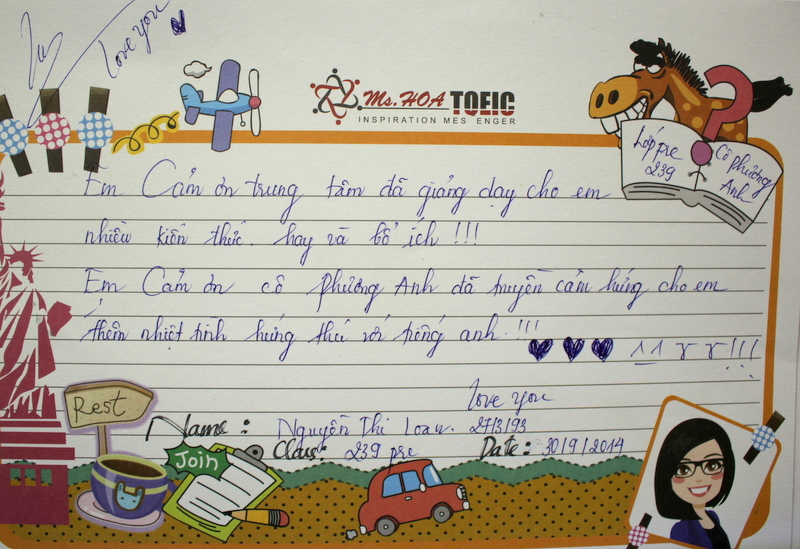 Love you
Ms. HOA TOEIC
INSPIRATION MES ENGER
Lớp pre
239
Cô Phương
Anh
Em Cảm ơn trung tâm đã giảng dạy cho em
nhiều kiến thức. hay và bổ ích !!!
Em Cảm ơn cô Phương Anh đã truyền cảm hứng cho em
thêm nhiệt tình hứng thú với tiếng anh. !!!
!!!
love you
Rest
Name: Nguyễn Thị Loan. 27/3/93
Join
Class: 239 pre Date: 30/9/2014